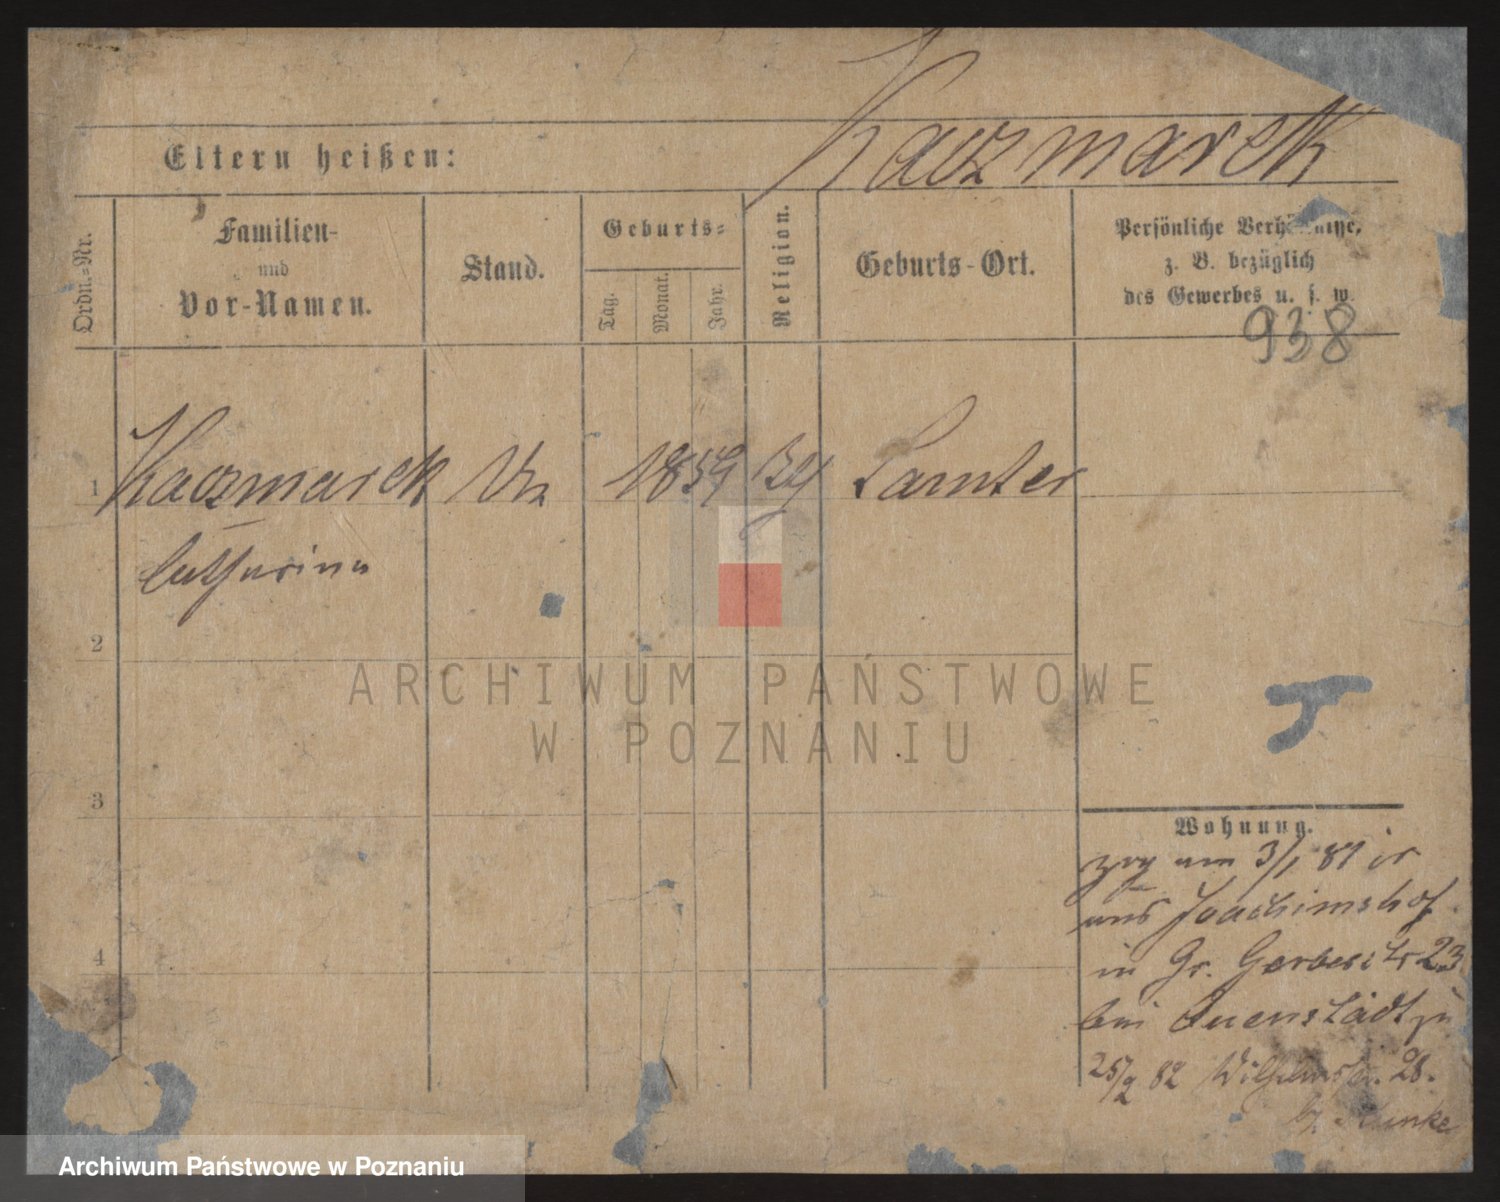 Kaczmarek
Eltern heißen:
Ordn.-Nr.
Familien-
und
Vor-Namen.
Stand.
Geburts-
Tag.
Monat.
Jahr.
Religion.
Geburts-Ort.
Persönliche
z. B. bezüglich
des Gewerbes u. s. w.
938
1 Kaczmarek 1859 Samter
Catharina
2
3
4
Wohnung.
zog am 3/1 81 ir
aus Joachimshof
in Gr. Gerberstr 23
bei Quenstädt zu
25/9 82 Wilhelmstr. 28.
ARCHIWUM PAŃSTWOWE
W POZNANIU
Archiwum Państwowe w Poznaniu